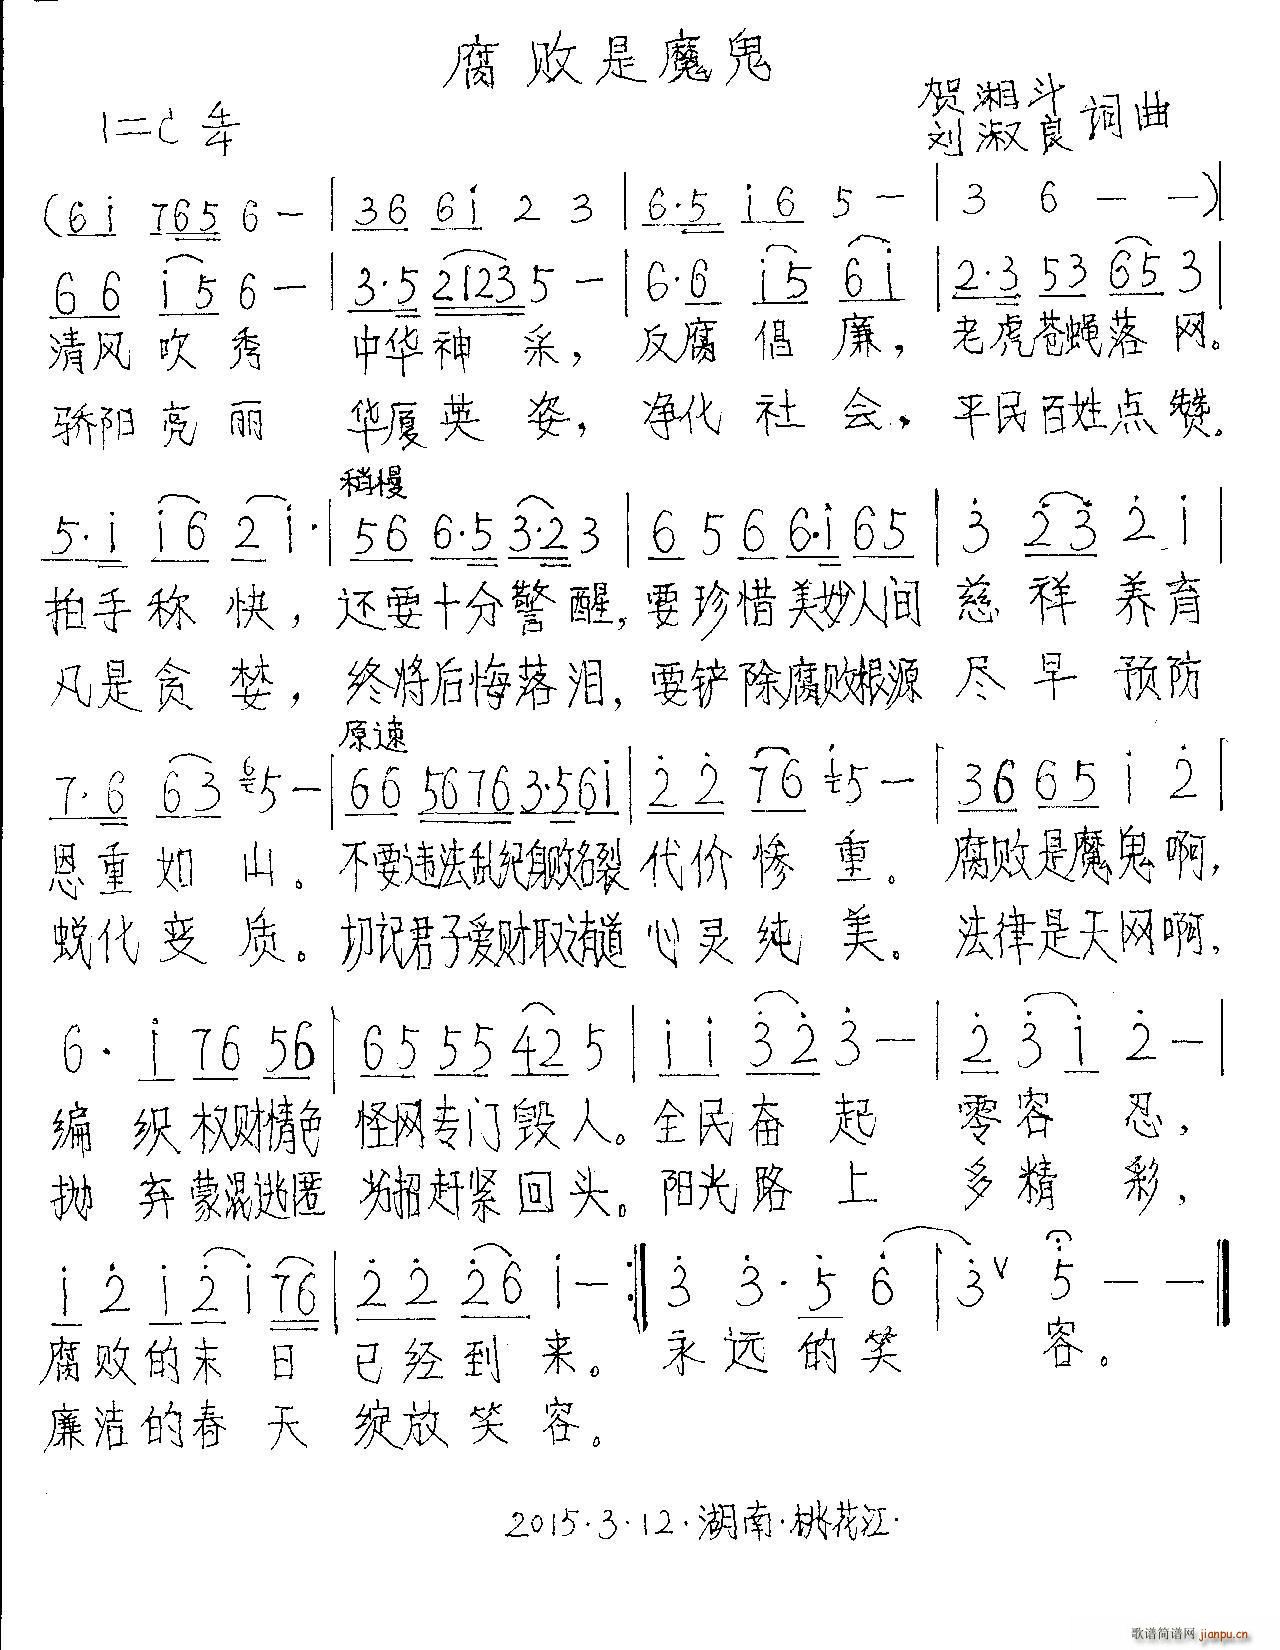 腐败是魔鬼
1=C 4/4
贺湘斗
刘淑良 词曲
(6i 765 6 - | 36 6i 2 3 | 6·5 i6 5 - | 3 6 - -)|
66 i5 6 - | 3·5 2123 5 - | 6·6 i5 6i | 2·3 53 65 3 |
清风吹秀 中华神采，反腐倡廉，老虎苍蝇落网。
骄阳亮丽 华厦英姿，净化社会，平民百姓点赞。
稍慢
5·i i6 2 i· | 56 6·5 3·2 3 | 6 5 6 6·i 65 | 3 2 3 2 i |
拍手称快，还要十分警醒，要珍惜美妙人间 慈祥养育
凡是贪婪，终将后悔落泪，要铲除腐败根源 尽早预防
原速
7·6 63 6 5 - | 66 5676 3·56i | 2 2 76 i 5 - | 36 65 i 2 |
恩重如山。不要违法乱纪身败名裂 代价惨重。腐败是魔鬼啊，
蜕化变质。切记君子爱财取之有道 心灵纯美。法律是天网啊，
6· i 76 56 | 65 55 42 5 | i i 3 2 3 - | 2 3 i 2 - |
编织权财情色 怪网专门毁人。全民奋起 零容忍，
抛弃蒙混逃匿 招赶紧回头。阳光路上 多精彩，
i 2 i 2 i 76 | 2 2 2 6 i - :‖ 3 3· 5 6 | 3 V 5 - - ‖
腐败的末日 已经到来。永远的笑容。
廉洁的春天 绽放笑容。
2015·3·12·湖南·桃花江·
歌谱简谱网 jianpu.cn